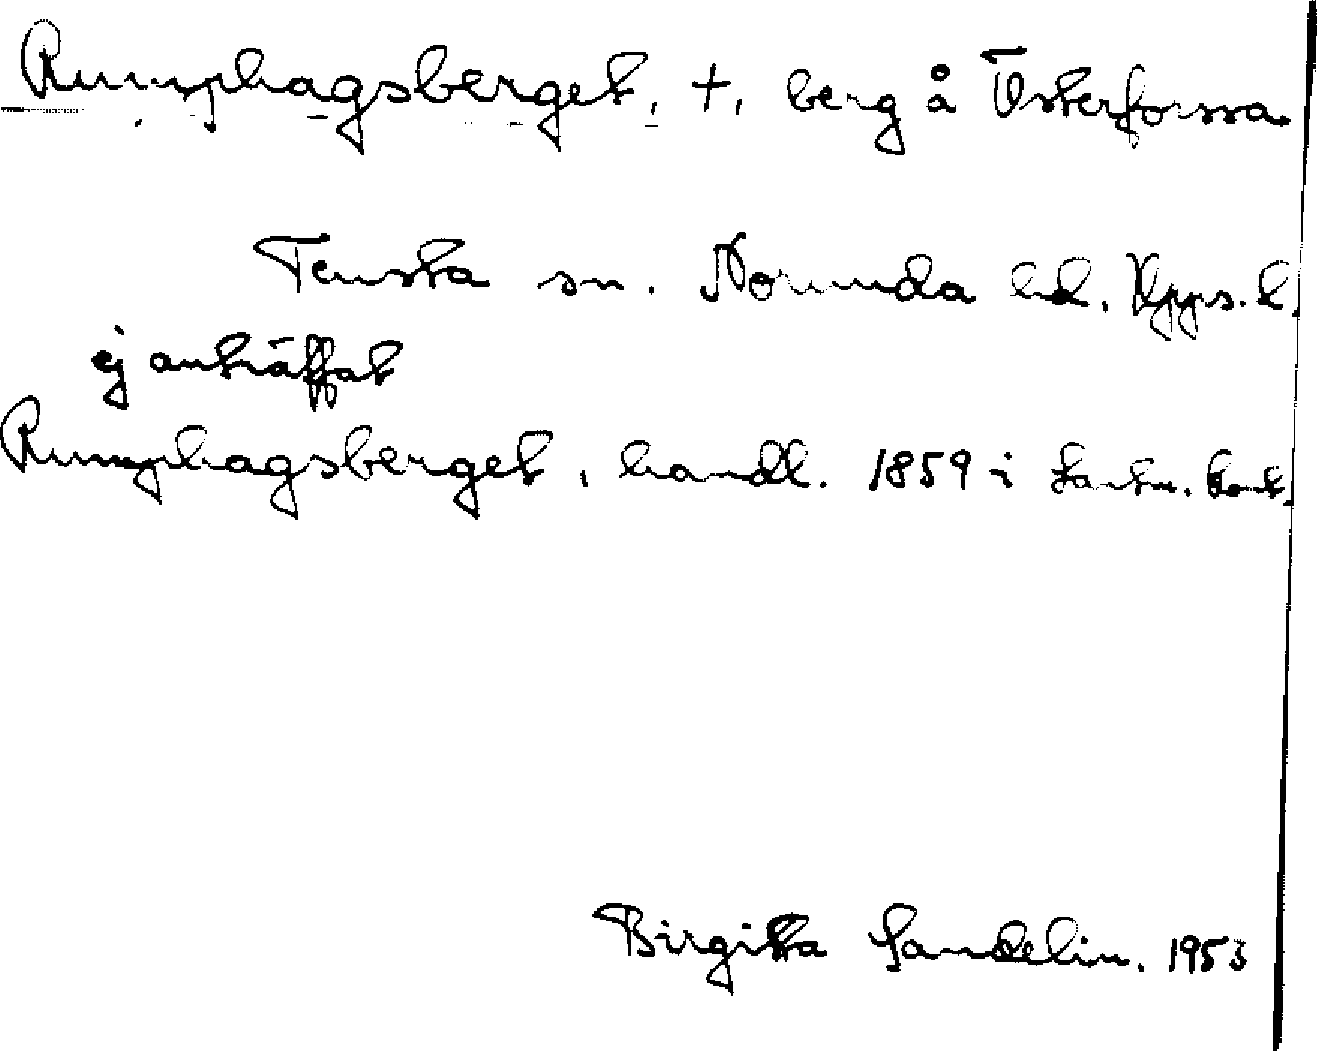 Rumphagsberget, +, berg å Österforssa.
Tensta sn. Norunda hd. Upps. l.
ej anträffat
Rumphagsberget, handl. 1859 i Lantm. kont.
Birgitta Sandelin. 1953